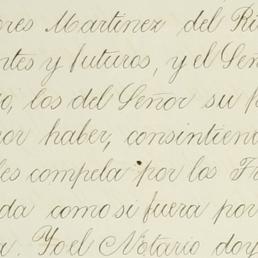 ores Martinez del Ri
ntes y futuros, y el Señ
o, los del Señor su p
or haber, consintiend
les compela por los Tr
da como si fuera por
a. Yo el Notario doy